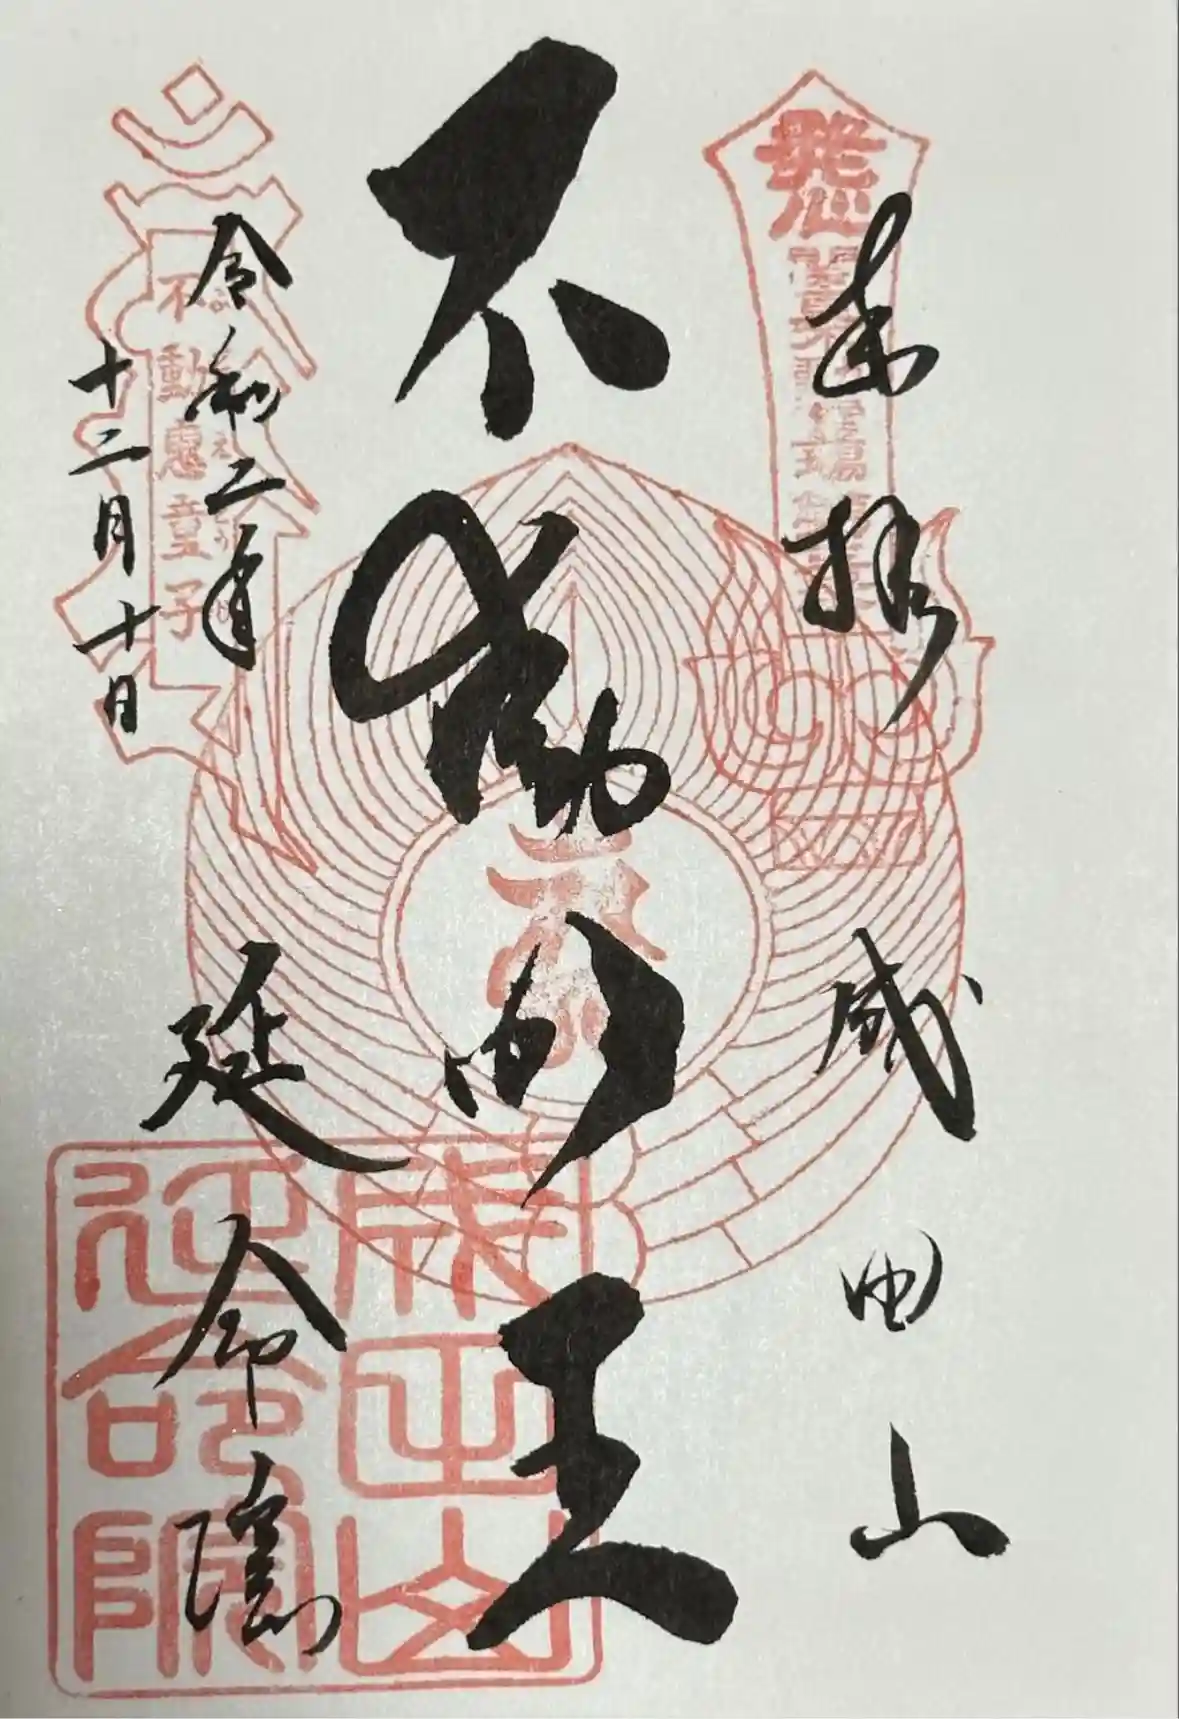 奉拝 成田山
不動明王
令和二年
十二月十日
延命院
不動
慧童子
成田山
延命院